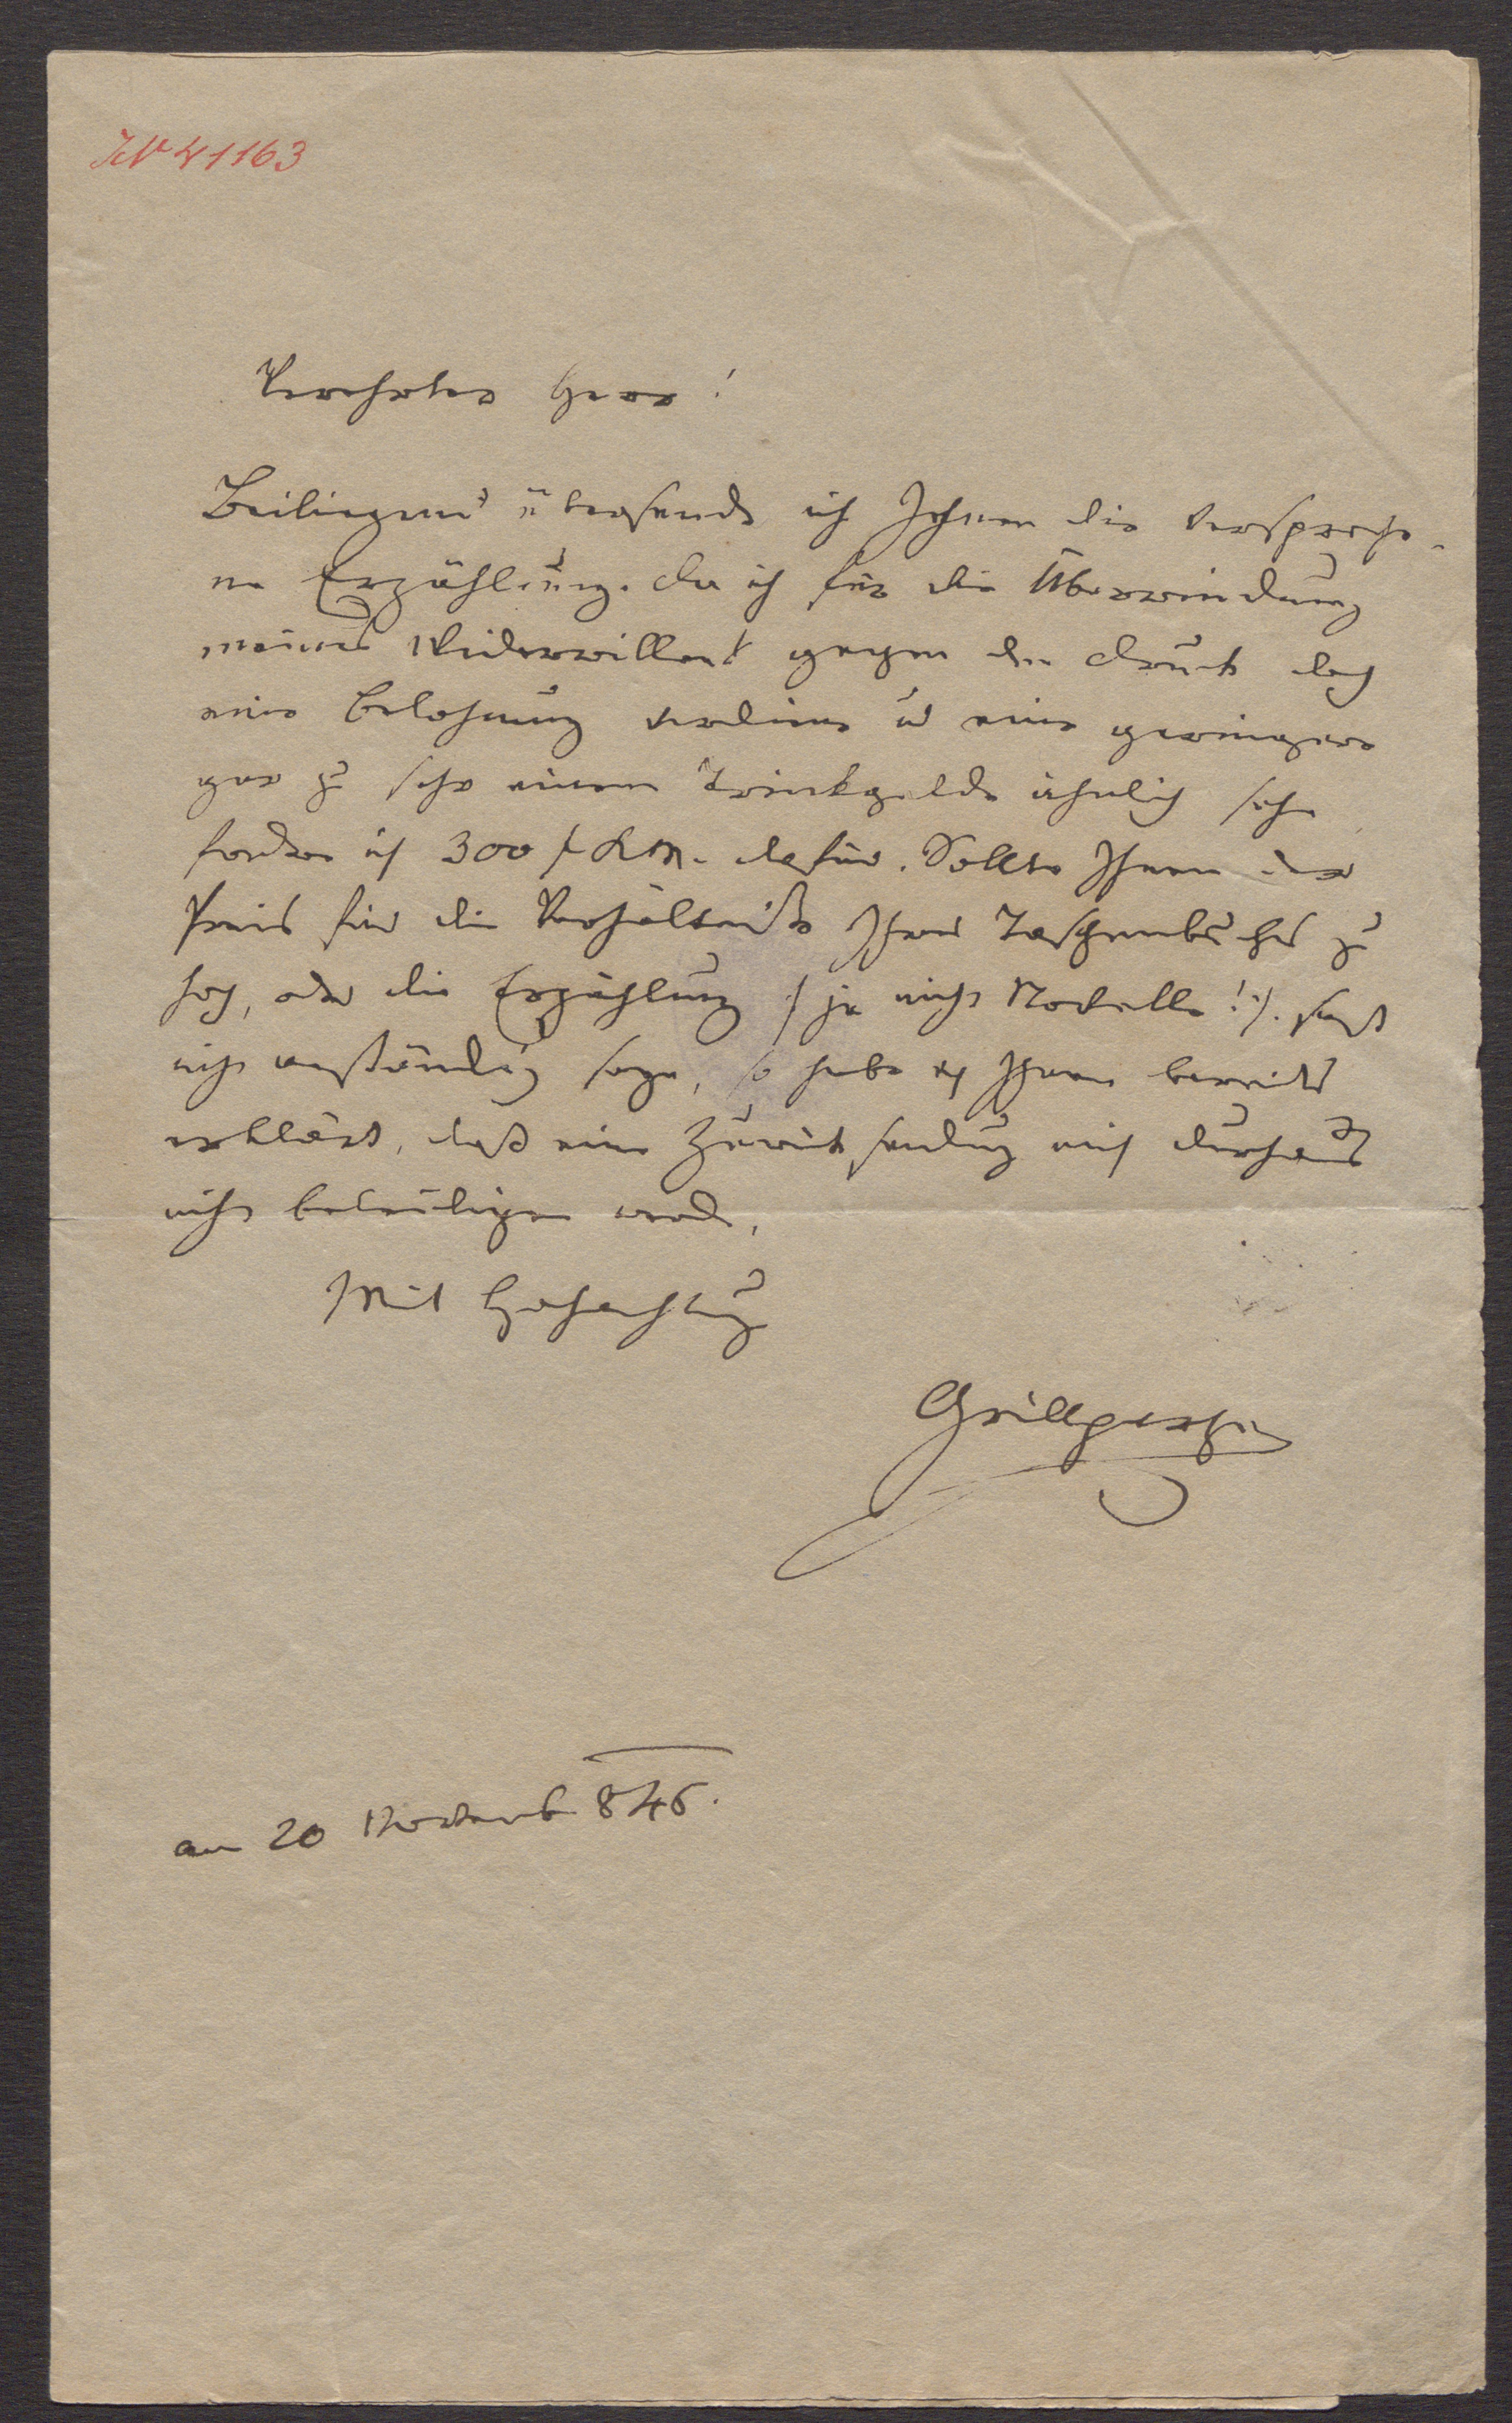 IN 41163
Verehrter Herr!
Beiliegend übersende ich Ihnen die versproche-
ne Erzählung. Da ich für die Überwindung
meines Widerwillens gegen den Druck doch
eine Belohnung verdiene u eine geringere
gar zu sehr einem Trinkgelde ähnlich sähe
fordere ich 300 f. K.M. dafür. Sollte Ihnen der
Preis für die Verhältniße Ihres Taschenbuches zu
hoch, oder die Erzählung /: ja nicht Novelle! :/.
nicht anständig seyn, so habe ich Ihnen bereits
erklärt, daß eine Zurücksendung mich durchaus
nicht beleidigen werde.
Mit Hochachtung
Grillparzer
am 20 Novemb. 846.